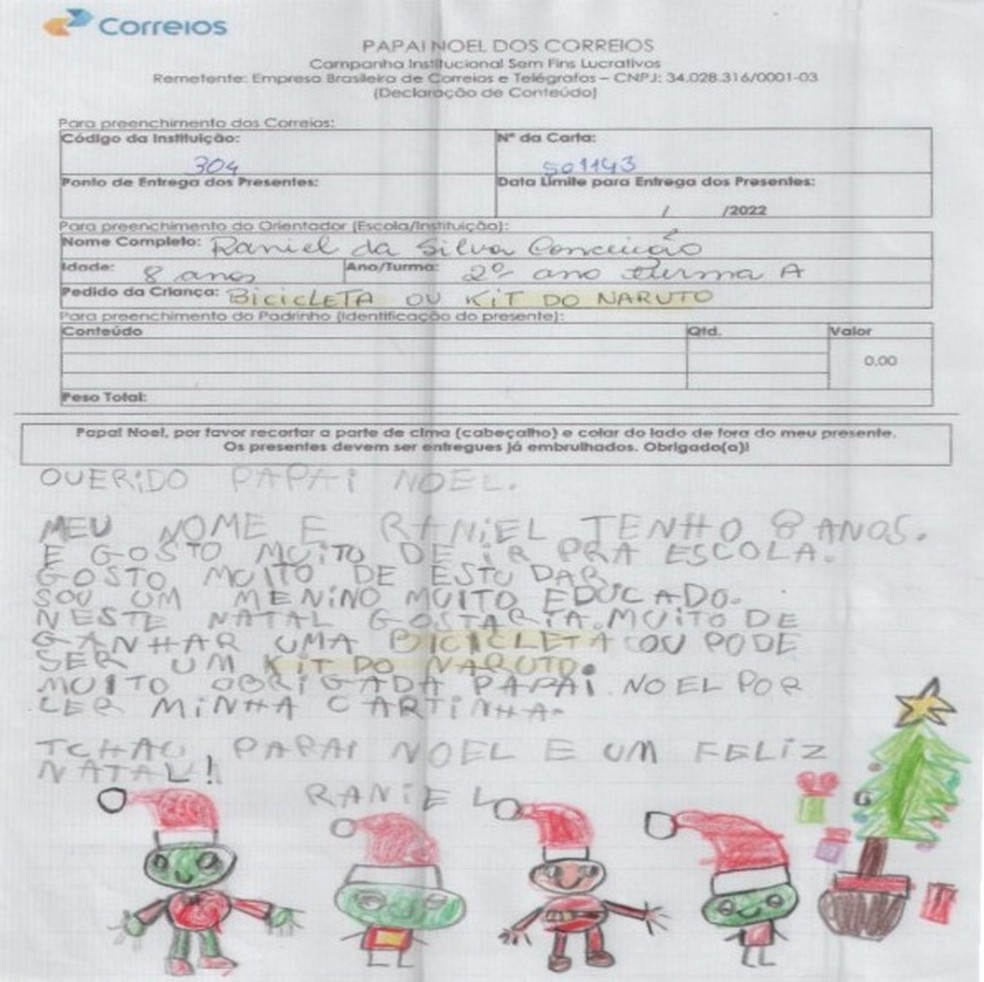 Correios
PAPAI NOEL DOS CORREIOS
Campanha Institucional Sem Fins Lucrativos
Remetente: Empresa Brasileira de Correios e Telégrafos – CNPJ: 34.028.316/0001-03
(Declaração de Conteúdo)
Para preenchimento dos Correios:
Código da Instituição: Nº da Carta:
304 501143
Ponto de Entrega dos Presentes: Data Limite para Entrega dos Presentes:
/ /2022
Para preenchimento do Orientador (Escola/Instituição):
Nome Completo: Raniel da Silva Conceição
Idade: 8 anos Ano/Turma: 2º ano turma A
Pedido da Criança: BICICLETA OU KIT DO NARUTO
Para preenchimento do Padrinho (Identificação do presente):
Conteúdo Qtd. Valor
0,00
Peso Total:
Papai Noel, por favor recortar a parte de cima (cabeçalho) e colar do lado de fora do meu presente.
Os presentes devem ser entregues já embrulhados. Obrigado(a)!
QUERIDO PAPAI NOEL.
MEU NOME E RANIEL TENHO 8 ANOS.
E GOSTO MUITO DE IR PRA ESCOLA.
GOSTO MUITO DE ESTUDAR.
SOU UM MENINO MUITO EDUCADO.
NESTE NATAL GOSTARIA MUITO DE
GANHAR UMA BICICLETA OU PODE
SER UM KIT DO NARUTO.
MUITO OBRIGADA PAPAI NOEL POR
LER MINHA CARTINHA.
TCHAU PAPAI NOEL E UM FELIZ
NATAL!
RANIEL